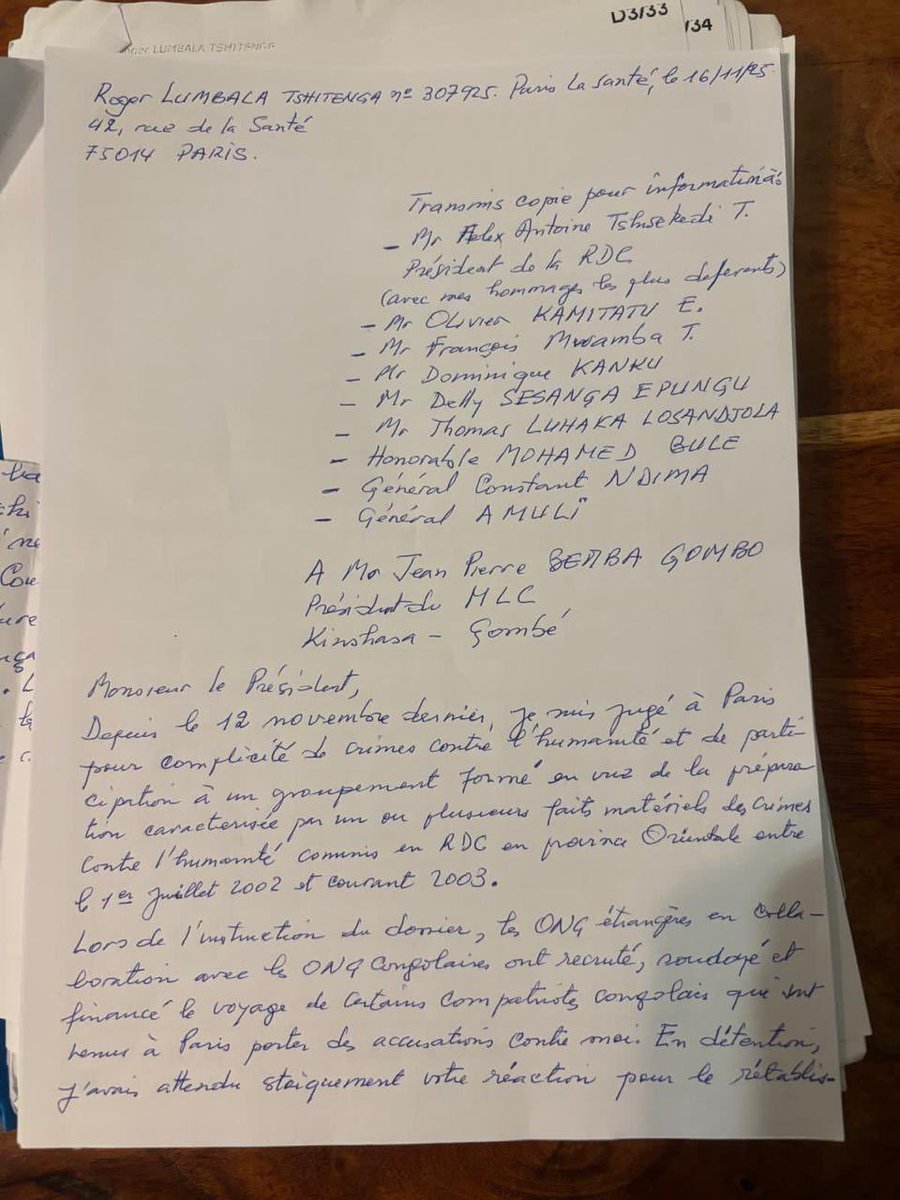 D3/33
/34
LUMBALA TSHITENGE
Roger LUMBALA TSHITENGA nº 307925. Paris La Santé, le 16/11/25.
42, rue de la Santé
75014 PARIS.
Transmis copie pour information à:
- Mr Felix Antoine Tshisekedi T.
Président de la RDC
(avec mes hommages les plus deferents)
- Mr Olivier KAMITATU E.
- Mr François Mwamba T.
- Mr Dominique KANKU
- Mr Delly SESANGA EPUNGU
- Mr Thomas LUHAKA LOSANDJOLA
- Honorable MOHAMED BULE
- Général Constant NDIMA
- Général AMULI
A Mr Jean Pierre BEMBA GOMBO
Président du MLC
Kinshasa - Gombé
Monsieur le Président,
Depuis le 12 novembre dernier, je suis jugé à Paris
pour complicité de crimes contre l'humanité et de parti-
cipation à un groupement formé en vue de la prépara
tion caractérisée par un ou plusieurs faits matériels des crimes
contre l'humanité commis en RDC en province Orientale entre
le 1er Juillet 2002 et courant 2003.
Lors de l'instruction du dossier, les ONG étrangères en colla-
boration avec les ONG Congolaises ont recruté, soudoyé et
financé le voyage de certains compatriotes congolais qui sont
venus à Paris porter des accusations contre moi. En détention,
j'avais attendu stoïquement votre réaction pour le rétablis-